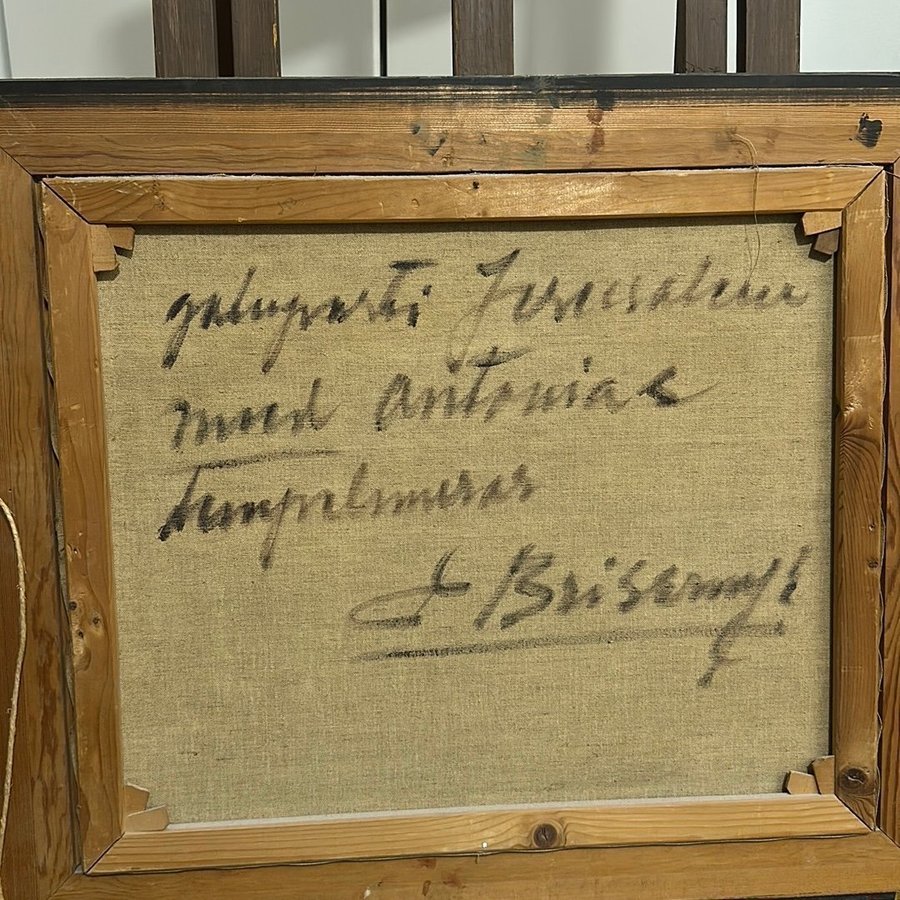 gatuparti Jerusalem
med Antonias
tempelmurar
J Beisermyl